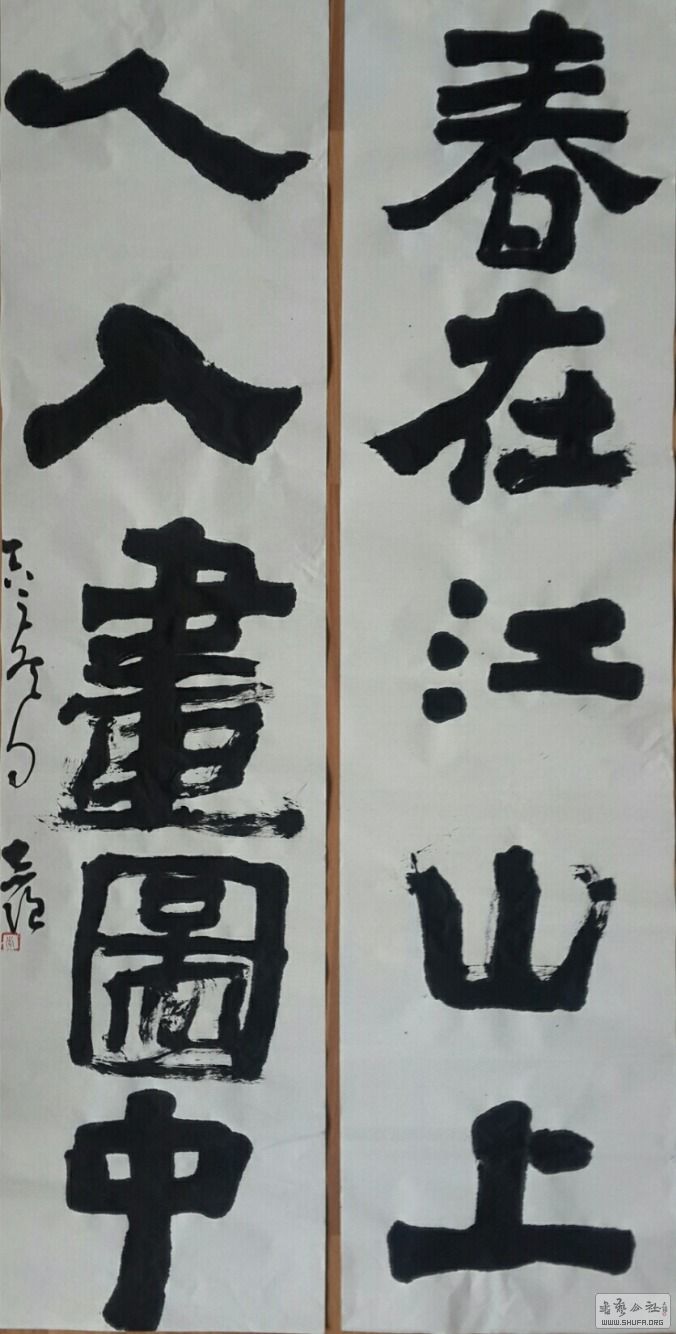 春在江山上
人入畫圖中
書藝公社
WWW.SHUFA.ORG